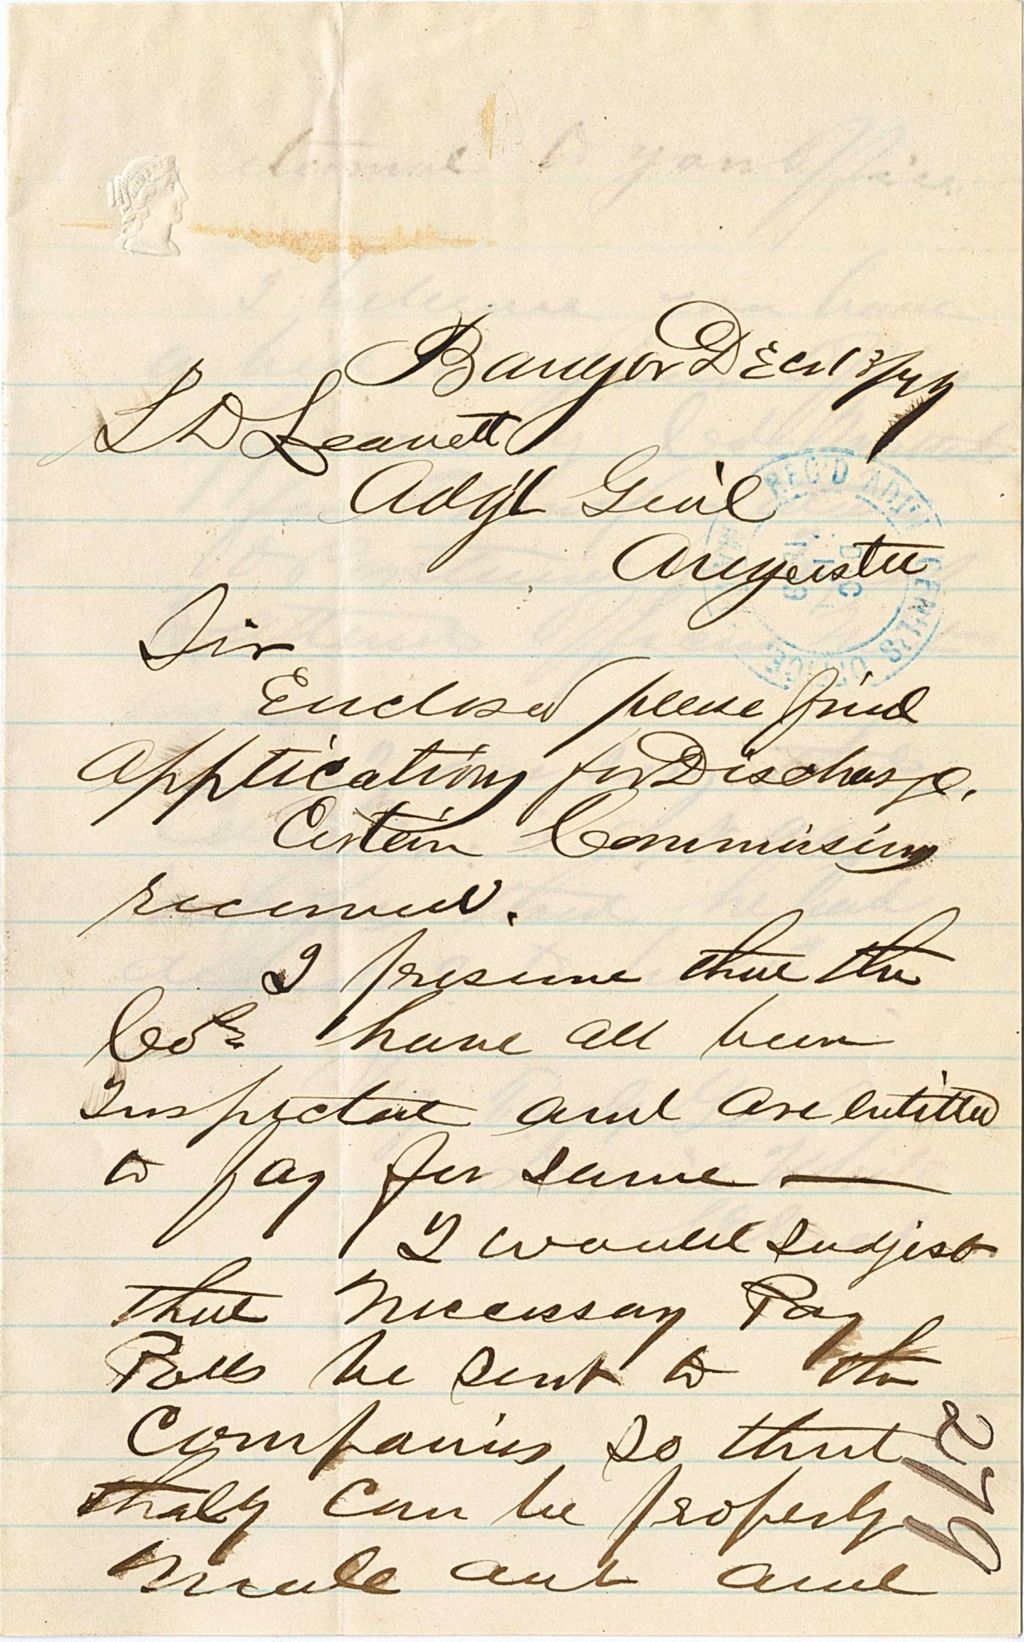 Bangor Dec 13/79
S D Leavett
Adgt Genl
Augusta
REC'D ADJT. GEN'L'S OFFICE
DEC
1879
Sir
Enclosed please find
Applications for Discharge.
Certain Commissions
received.
I presume that the
Cos have all been
Inspected and are entitled
to pay for same —
I would sudjest
that necessary Pay
Rolls be sent to the
Companies so that
thaly can be properly
made out and
279